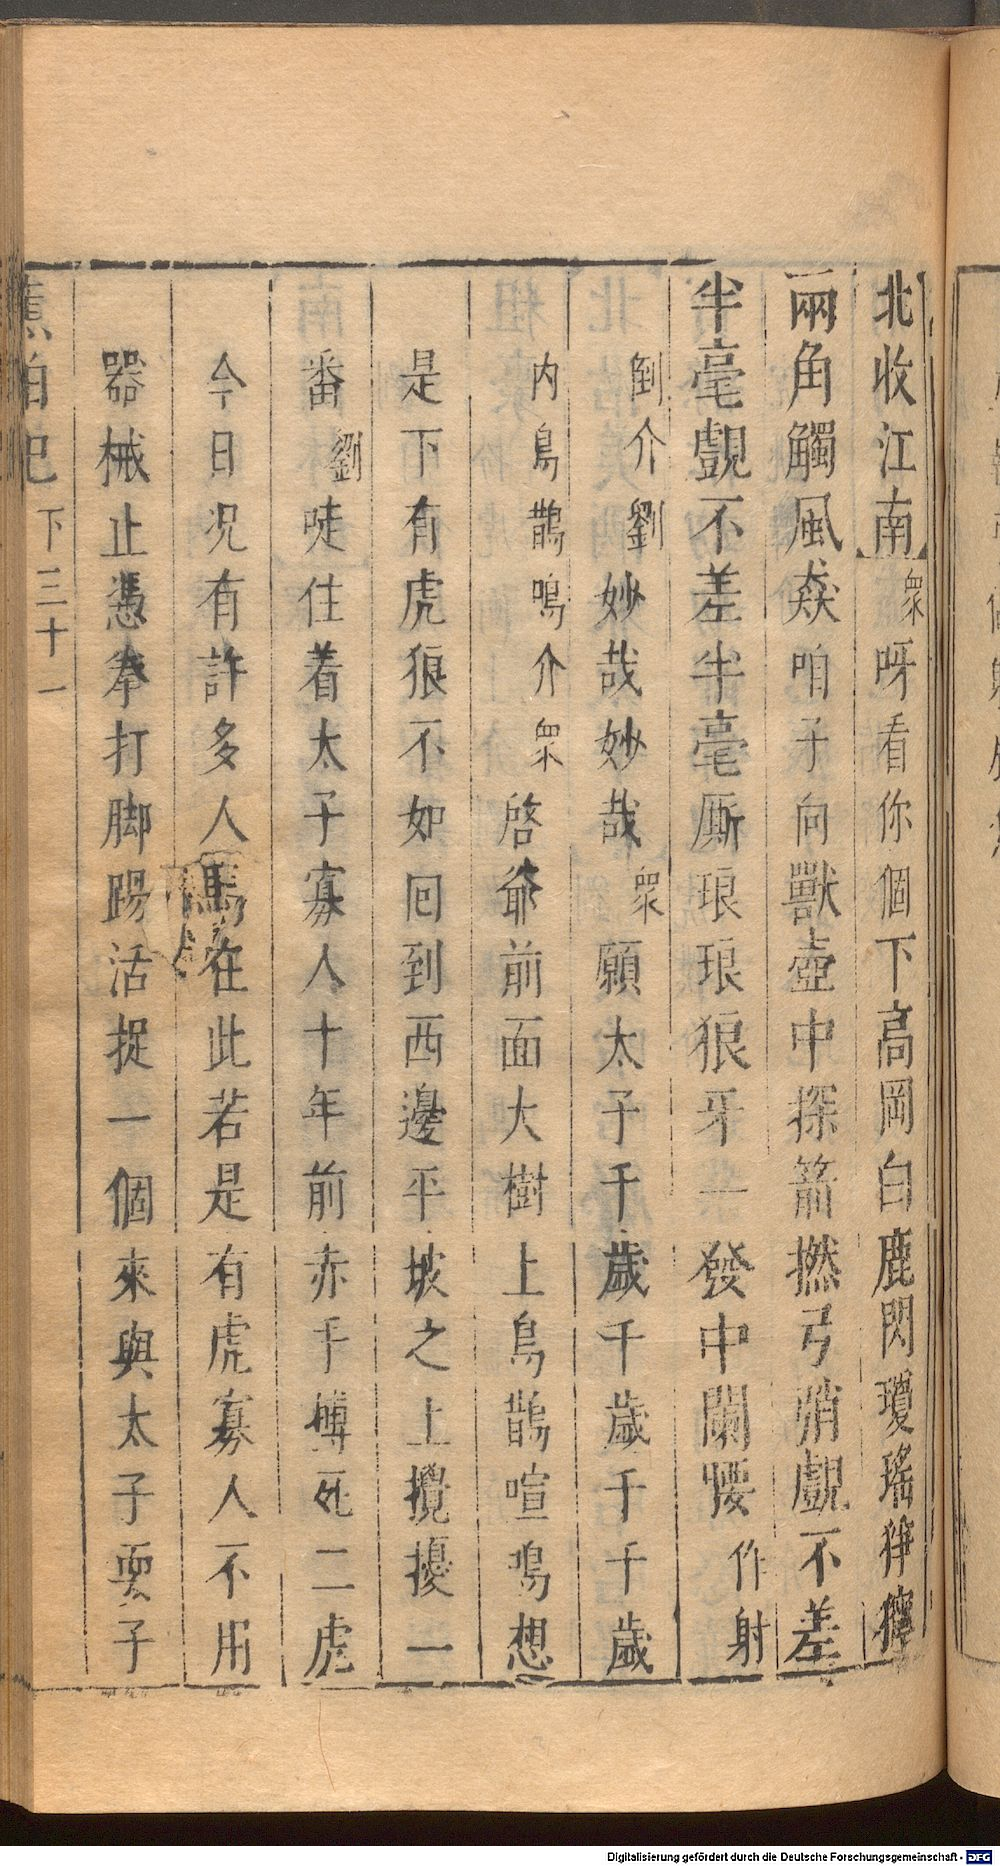 北收江南衆呀看你個下高岡白鹿閃瓊瑤猙獰
兩角觸風猋咱于向獸壺中探箭撚弓弰覷不差
半毫覷不差半毫厮琅琅狼牙一發中闌腰作射
倒介劉妙哉妙哉衆願太子千歲千歲千千歲
内鳥鵲鳴介衆啓爺前面大樹上鳥鵲喧鳴想
是下有虎狼不如回到西邊平坡之上攪擾一
番劉唗住着太子寡人十年前赤手搏死二虎
今日况有許多人馬在此若是有虎寡人不用
器械止憑拳打脚踢活捉一個來與太子耍子
蕉帕記 下 三十一
Digitalisierung gefördert durch die Deutsche Forschungsgemeinschaft - DFG